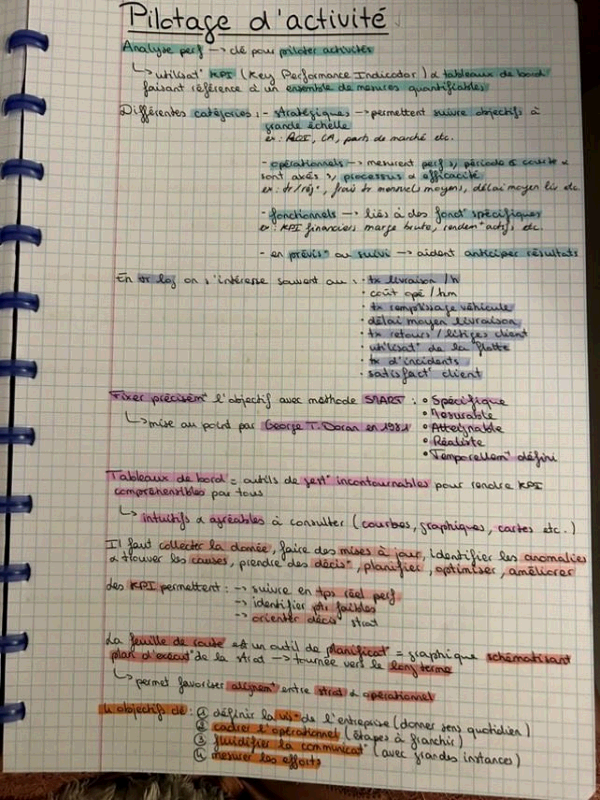 Pilotage d'activité
Analyse perf → clé pour piloter activités
↳ utilisat° KPI (Key Performance Indicator) & tableaux de bord
faisant référence à un ensemble de mesures quantifiables
Différentes catégories : - stratégiques → permettent suivre objectifs à
grande échelle
ex : ROI, CA, parts de marché etc.
- opérationnels → mesurent perf s/ période + courte &
sont axés s/ processus & efficacité
ex : tr/rég°, frais tr mensuels moyens, délai moyen liv etc
- fonctionnels → liés à des fonct° spécifiques
ex : KPI financiers marge brute, rendem^t actifs etc.
- en prévis° ou suivi → aident anticiper résultats
En tr log on s'intéresse souvent au : • tx livraison /h
• coût opé /km
• tx remplissage véhicule
• délai moyen livraison
• tx retours / litiges client
• utilisat° de la flotte
• tx d'incidents
• satisfact° client
Fixer précisém^t l'objectif avec méthode SMART : • Spécifique
• Mesurable
↳ mise au point par George T. Doran en 1981 • Atteignable
• Réaliste
• Temporellem^t défini
Tableaux de bord = outils de gest° incontournables pour rendre KPI
compréhensibles par tous
↳ intuitifs & agréables à consulter (courbes, graphiques, cartes etc.)
Il faut collecter la donnée, faire des mises à jour, identifier les anomalies
& trouver les causes, prendre des décis°, planifier, optimiser, améliorer
des KPI permettent : → suivre en tps réel perf
→ identifier pts faibles
→ orienter décis° strat
La feuille de route est un outil de planificat° = graphique schématisant
plan d'exécut° de la strat → tournée vers le long terme
↳ permet favoriser alignem^t entre strat & opérationnel
4 objectifs de : ① définir la vis° de l'entreprise (donner sens quotidien)
② cadrer l'opérationnel (étapes à franchir)
③ fluidifier la communicat° (avec grandes instances)
④ mesurer les efforts